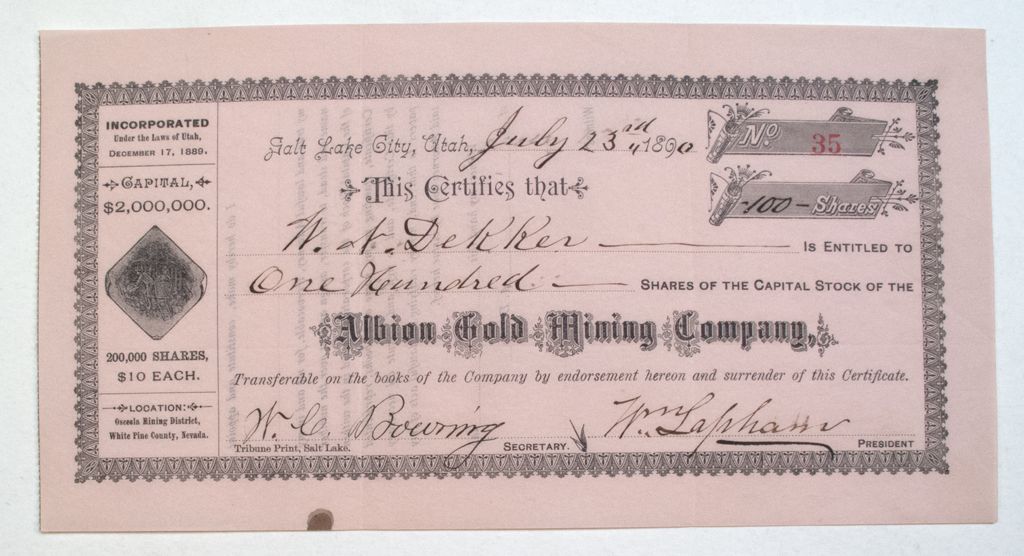 INCORPORATED
Under the Laws of Utah,
DECEMBER 17, 1889.
CAPITAL,
$2,000,000.
200,000 SHARES,
$10 EACH.
LOCATION:
Osceola Mining District,
White Pine County, Nevada.
Salt Lake City, Utah, July 23rd 1890
No. 35
This Certifies that
-100- Shares
W. N. Dekker IS ENTITLED TO
One Hundred SHARES OF THE CAPITAL STOCK OF THE
Albion Gold Mining Company,
Transferable on the books of the Company by endorsement hereon and surrender of this Certificate.
W. C. Bowring Wm Lapham
Tribune Print, Salt Lake. SECRETARY. PRESIDENT